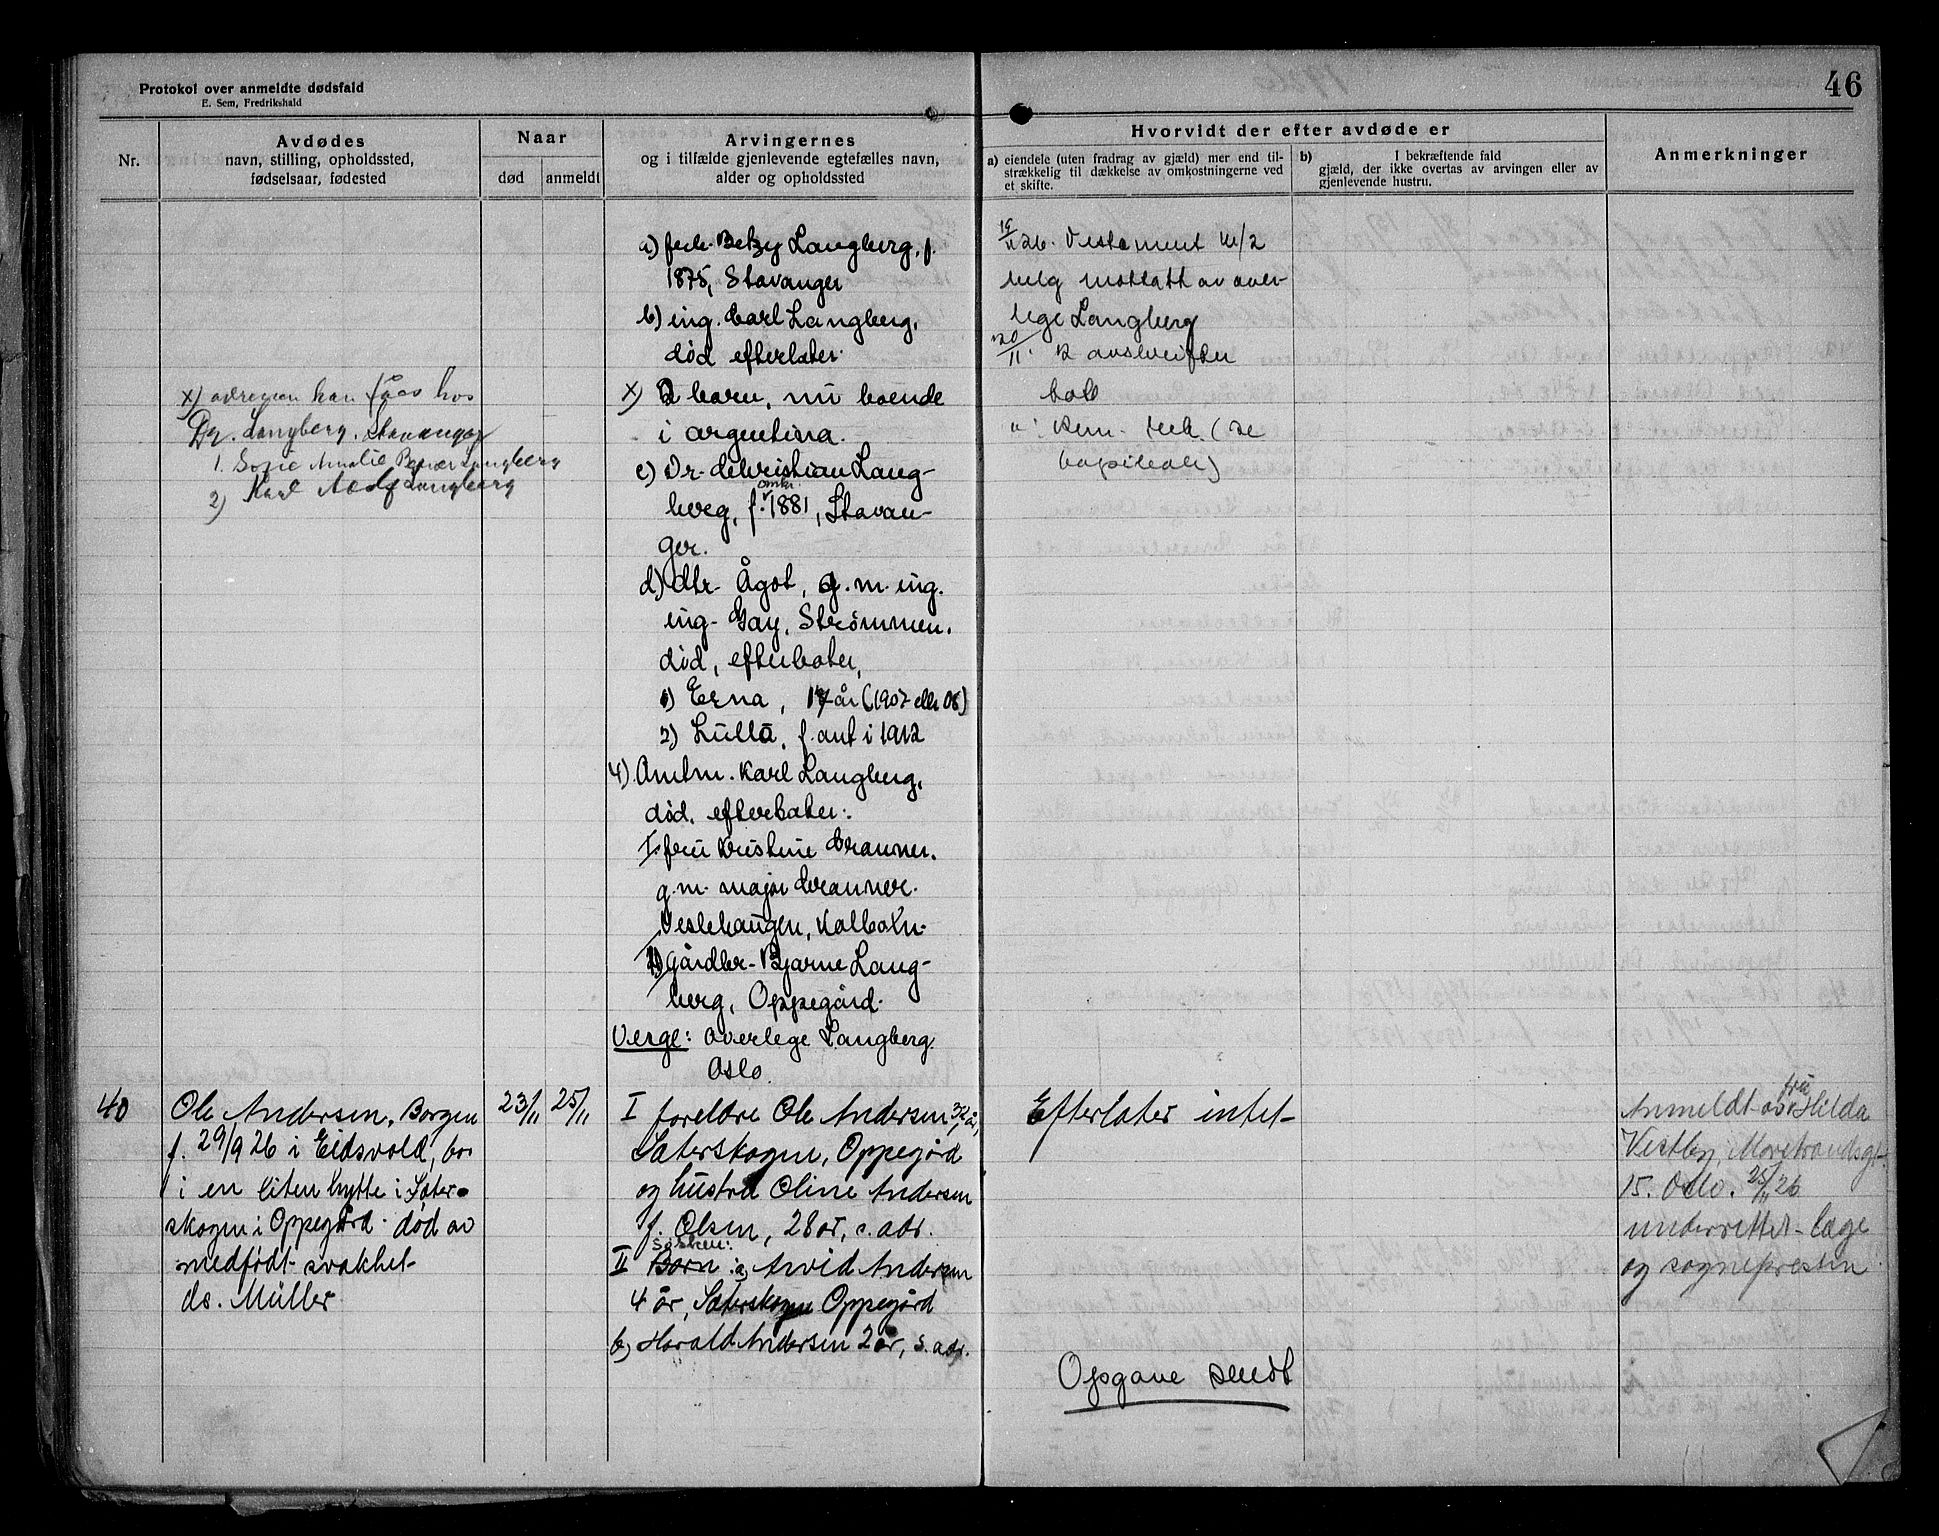 Protokol over anmeldte dødsfald
E. Sem, Fredrikshald
46
Nr.
Avdødes
navn, stilling, opholdssted,
fødselsaar, fødested
Naar
død
anmeldt
Arvingernes
og i tilfælde gjenlevende egtefælles navn,
alder og opholdssted
Hvorvidt der efter avdøde er
a) eiendele (uten fradrag av gjæld) mer end til-
strækkelig til dækkelse av omkostningerne ved
et skifte.
b) I bekræftende fald
gjæld, der ikke overtas av arvingen eller av
gjenlevende hustru.
Anmerkninger
x) adressen kan fåes hos
Dr. Langberg. Stavanger
1. Sofie Amalie Langberg
2) Karl Adolf Langberg
a) frk. Betzy Langberg, f.
1875, Stavanger
b) ing. Carl Langberg,
død efterlater:
x) 2 barn, nu boende
i Argentina.
c) Dr. Christian Lang-
berg, f. omkr. 1881, Stavan-
ger.
d) dtr. Ågot, g.m. ing.
ing. Gay, Strømmen,
død, efterlater,
1) Erna, 17 år (1907 eller 08)
2) Lulla, f. ant i 1912
4) Amtm. Karl Langberg,
død, efterlater:
I. fru Kristine Cranner,
g.m. major Cranner.
Veslehaugen, Kolbotn.
II) Gårdbr. Bjarne Lang-
berg, Oppegård.
Verge: overlege Langberg.
Oslo.
16/11 26. Testament m/2
bilg mottatt av over-
lege Langberg
20/11. 2 avskrifter
(se
40
Ole Andersen, Borgen
f. 29/9 26 i Eidsvold, bor
i en liten hytte i Sæter-
skogen i Oppegård. død av
medfødt svakhet
ds. Müller
23/11
25/11
I foreldre Ole Andersen 32 år,
Sæterskogen, Oppegård
og hustru Oline Andersen
f. Olsen, 28 år, s. adr.
II Børn søsken: a) Arvid Andersen
4 år, Sæterskogen Oppegård
b) Harald Andersen 2 år, s. adr.
Efterlater intet
Opgave sendt
Anmeldt av fru Hilda
Vestby,
15. Oslo. 25/11 26
underrettet læge
og sognepresten